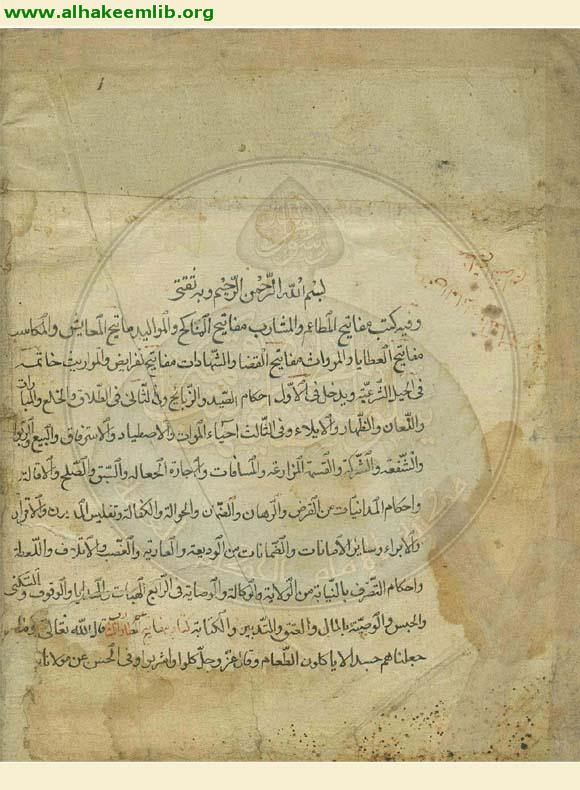 www.alhakeemlib.org
بسم الله الرحمن الرحيم وبه ثقتي
وفيه كتب مفاتيح المطاعم والمشارب مفاتيح المناكح والمواليد مفاتيح المعايش والمكاسب
مفاتيح العطايا والمروات مفاتيح القضا والشهادات مفاتيح الفرايض والمواريث خاتمه
في الحيل الشرعية ويدخل في الاول احكام الصيد والذبائح وفي الثاني في الطلاق والخلع والمبارات
واللعان والظهار والايلاء وفي الثالث احياء الموات والاصطياد والاسترقاق والبيع والربوا
والشفعة والشركة والقسمة المزارعه والمساقات والاجارة الجعاله والسبق والصلح والاقالة
واحكام المدانيات من القرض والرهان والضمان والحوالة والكفالة وتفليس المديون والاقرار
والابراء وساير الامانات والضمانات من الوديعة والعارية والغصب والاتلاف واللقطة
واحكام التصرف بالنيابة من الولاية والوكالة والوصاية في الرابع الهبات والهدايا والوقوف والسكنى
والحبس والوصية بالمال والعتق والتدبير والكتابة كتاب مفاتيح المطاعم والمشارب قال الله تعالى وما
جعلناهم جسدا لا ياكلون الطعام وقال عز وجل كلوا واشربوا وفي الحسن عن مولانا